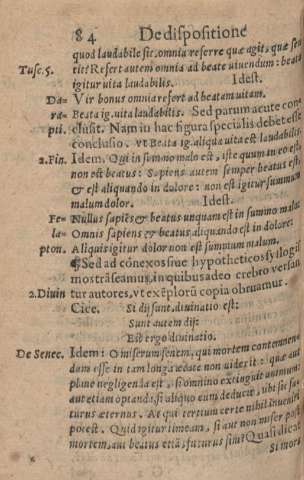 84 De dispositione
quod laudabile sit, omnia referre quæ agit, quæ sen
Tusc. 5. tit? Refert autem omnia ad beate viuendum: beata
igitur vita laudabilis. Idest.
Da= Vir bonus omnia refert ad beatam vitam.
ra= Beata ig. vita laudabilis. Sed parum acute con=
pti. clusit. Nam in hac figura specialis debet esse
conclusio. vt Beata ig. aliqua vita est laudabilis.
2. Fin. Idem. Qui in summo malo est, iste quum in eo est,
non est beatus: Sapiens autem semper beatus est,
& est aliquando in dolore: non est igitur summum
malum dolor. Idest.
Fe= Nullus sapiēs & beatus unquam est in summo malo:
la= Omnis sapiens & beatus aliquando est in dolore:
pton. Aliquis igitur dolor non est summum malum.
¶ Sed ad cōnexos siue hypotheticos syllogis
mos trāseamus, in quibus adeo crebro versan
2. Diuin tur autores, vt exēplorū copia obruamur.
Cice. Si dij sunt, diuinatio est:
Sunt autem dij:
Est ergo diuinatio.
De Senec. Idem: O miserum senem, qui mortem contemnen
dam esse in tam longa ætate non viderit: quæ aut
plane negligenda est, si omnino extinguit animum:
aut etiam optanda, si aliquo eum deducit, vbi sit fu
turus æternus. At qui tertium certe nihil inueniri
potest. Quid igitur timeam, si aut non miser post
mortem, aut beatus etiā, futurus sim? Quasi dicat
Si mors